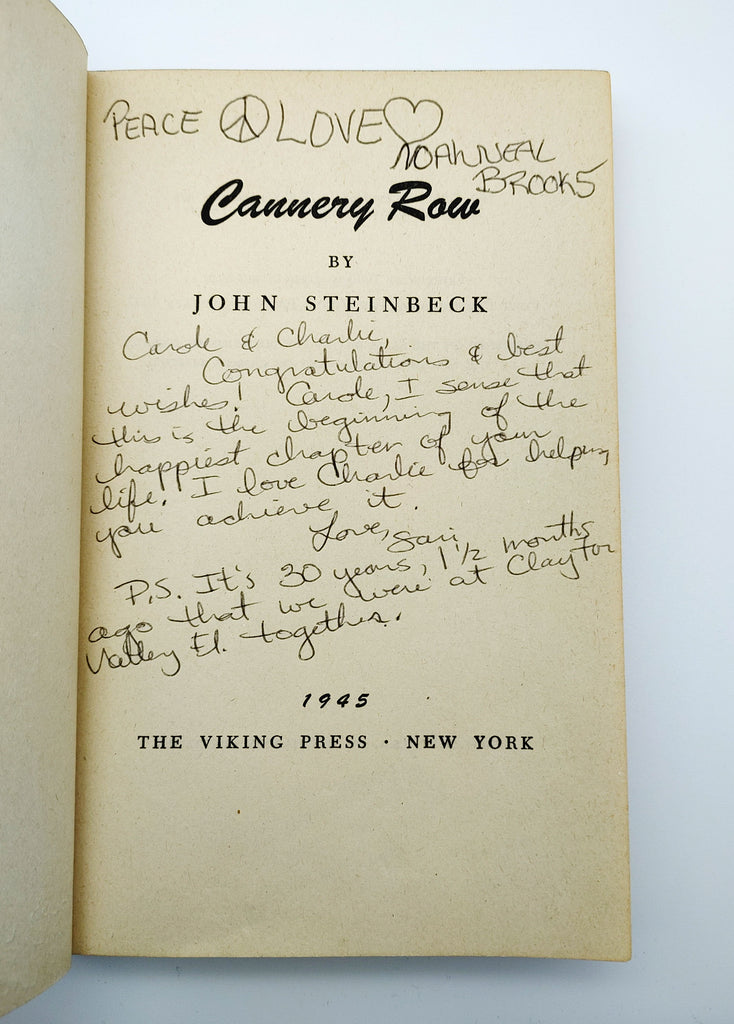 PEACE ☮ LOVE ♡
NOAH NEAL
BROOKS
Cannery Row
BY
JOHN STEINBECK
Carole & Charlie,
Congratulations & best
wishes! Carole, I sense that
this is the beginning of the
happiest chapter of your
life. I love Charlie for helping
you achieve it.
Love, Sari
P.S. It's 30 years, 1 1/2 months
ago that we were at Clayton
Valley El. together.
1945
THE VIKING PRESS · NEW YORK